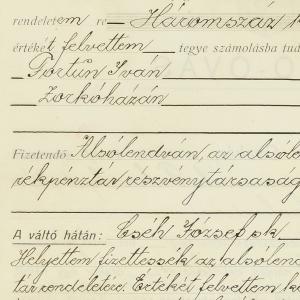 rendeletem re — Háromszáz k
értékét felvettem — tegye számolásba tud
— Fortún Iván
— Zorkóházán
Fizetendő Alsólendván, az alsóle
rékpénztár részvénytársaság
A váltó hátán: Cséh József sk
Helyettem fizettessék az alsólend
tár rendeletére. Értékét felvettem k